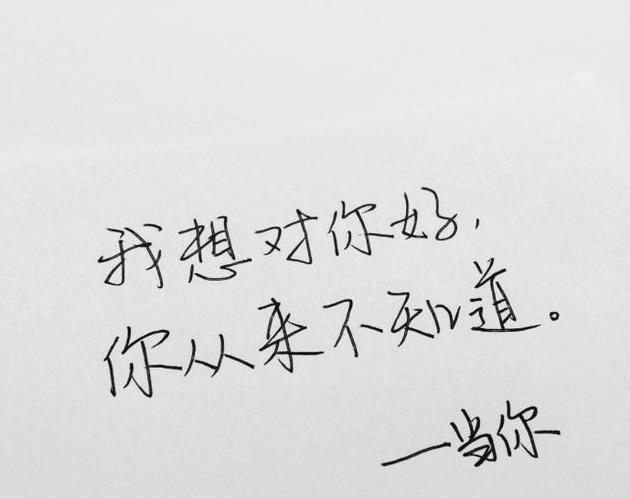 我想对你好，
你从来不知道。
—当你